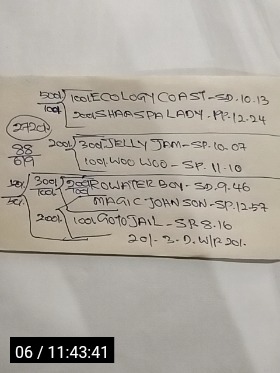 500/- 100/- ECOLOGY COAST-SD.10.13
100/- 200/- SHAASPA LADY-PP.12-24
2720/-
88 200/- 300/- JELLY JAM-SP.10.07
09 100/- WOO WOO-SP.11-10
300/- 200/- ROWATER BOY-SD.9.46
100/- 100/- MAGIC JOHNSON-SP.12-57
200/- 100/- GOTO JAIL-SR 8-16
20/- D.W/P 20/-
06 / 11:43:41